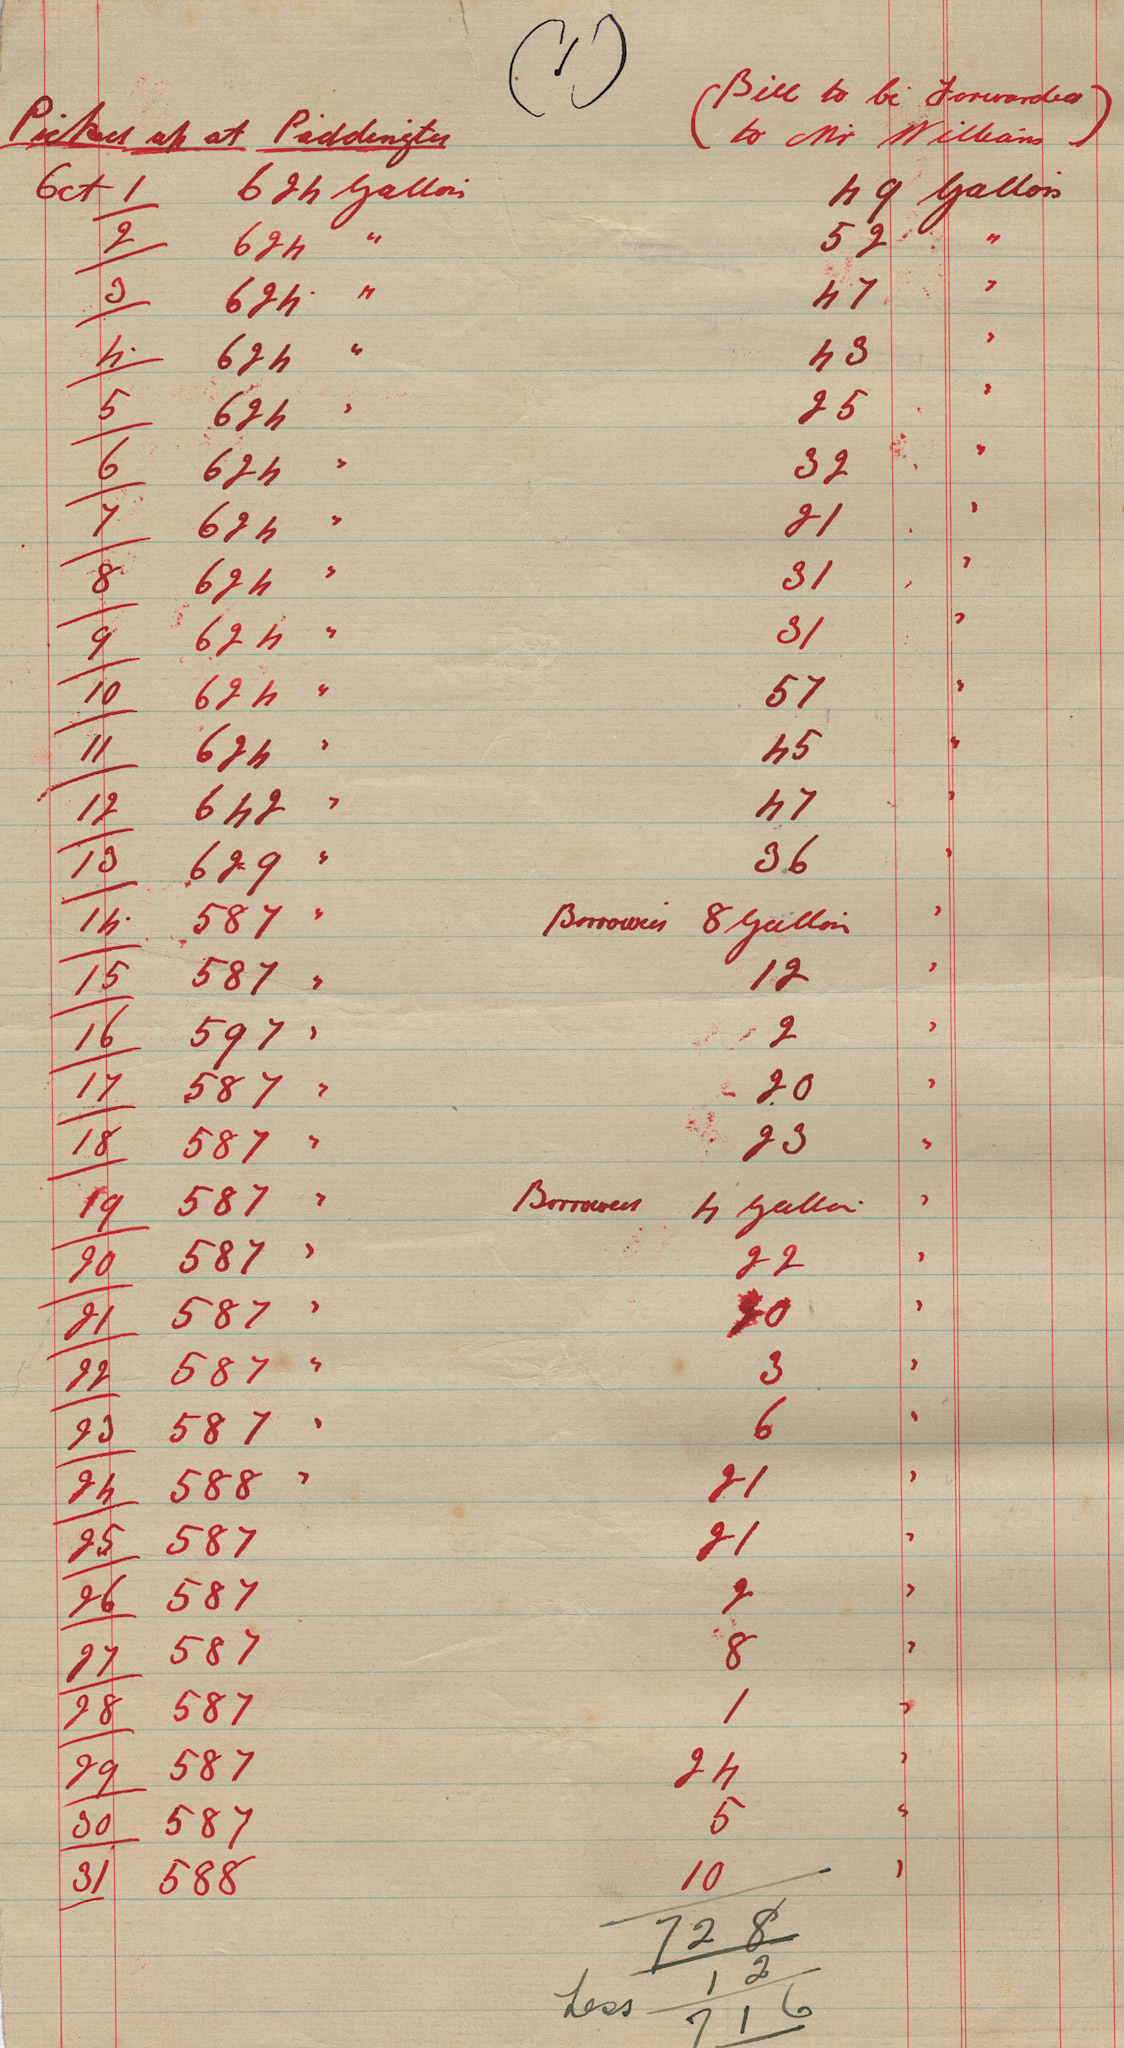 (1)
(Bill to be Forwarded
Picked up at Paddington to Mr Williams)
Oct 1 624 Gallons 49 Gallons
2 624 " 52 "
3 624 " 47 "
4 624 " 43 "
5 624 " 25 "
6 624 " 32 "
7 624 " 21 "
8 624 " 31 "
9 624 " 31 "
10 624 " 57 "
11 624 " 45 "
12 642 " 47 "
13 629 " 36 "
14 587 " Borrowed 8 Gallon "
15 587 " 12 "
16 597 " 2 "
17 587 " 20 "
18 587 " 23 "
19 587 " Borrowed 4 Gallon "
20 587 " 22 "
21 587 " 20 "
22 587 " 3 "
23 587 " 6 "
24 588 " 21 "
25 587 21 "
26 587 2 "
27 587 8 "
28 587 1 "
29 587 24 "
30 587 5 "
31 588 10 "
728
Less 12
716